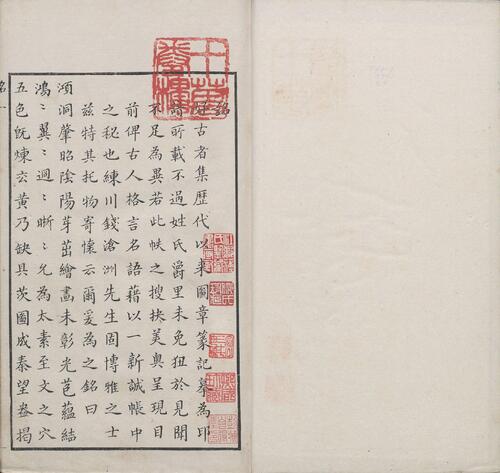 銘
好古者集歷代以來圖章篆記摹為印
譜所載不過姓氏爵里未免狃於見聞
不足為異若此帙之搜抉美奧呈現目
前俾古人格言名語藉以一新誠帳中
之秘也練川錢滄洲先生固博雅之士
茲特其托物寄懷云爾爰為之銘曰
澒洞肇昭陰陽芽茁繪畫未彰光芒蘊結
鴻〻翼〻迴〻晰〻允為太素至文之穴
五色既煉玄黃乃缺具茨圖成秦望龕揭
銘 一